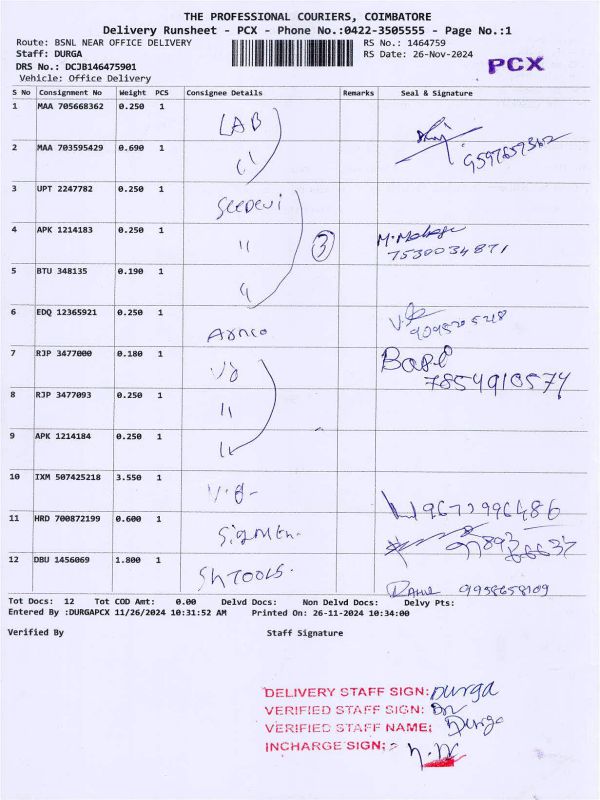 THE PROFESSIONAL COURIERS, COIMBATORE
Delivery Runsheet - PCX - Phone No.:0422-3505555 - Page No.:1
Route: BSNL NEAR OFFICE DELIVERY RS No.: 1464759
Staff: DURGA RS Date: 26-Nov-2024
DRS No.: DCJB146475901 PCX
Vehicle: Office Delivery
S No Consignment No Weight PCS Consignee Details Remarks Seal & Signature
1 MAA 705668362 0.250 1 LAB
2 MAA 703595429 0.690 1 "
3 UPT 2247782 0.250 1
4 APK 1214183 0.250 1 " 3
7530034871
5 BTU 348135 0.190 1 "
6 EDQ 12365921 0.250 1
7 RJP 3477000 0.180 1
7854910574
8 RJP 3477093 0.250 1 "
9 APK 1214184 0.250 1
10 IXM 507425218 3.550 1
11 HRD 700872199 0.600 1
12 DBU 1456069 1.800 1 Sh TOOLS.
9958658109
Tot Docs: 12 Tot COD Amt: 0.00 Delvd Docs: Non Delvd Docs: Delvy Pts:
Entered By :DURGAPCX 11/26/2024 10:31:52 AM Printed On: 26-11-2024 10:34:00
Verified By Staff Signature
DELIVERY STAFF SIGN: Durga
VERIFIED STAFF SIGN:
VERIFIED STAFF NAME: Durga
INCHARGE SIGN: